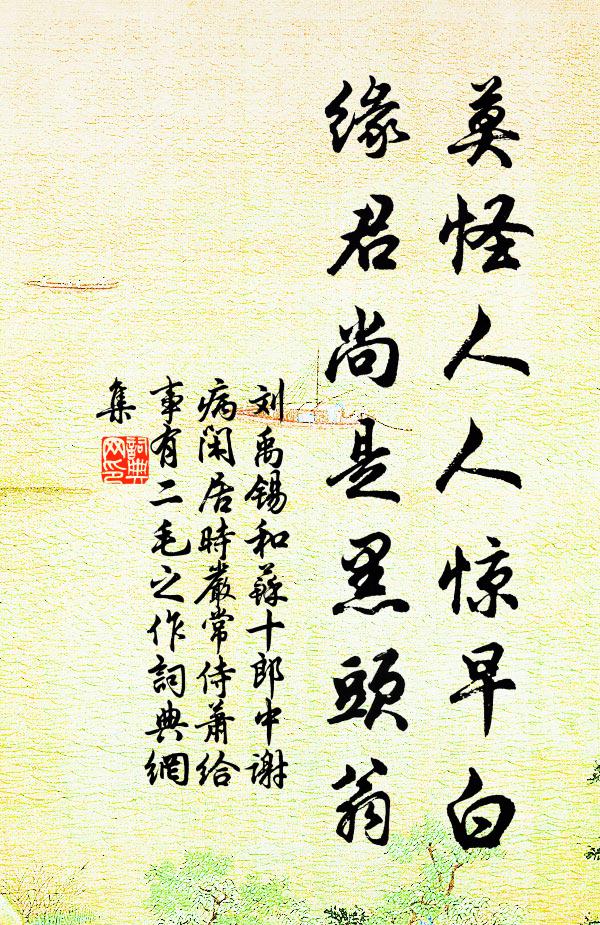 莫怪人人惊早白
缘君尚是黑頭翁
刘禹锡和蘇十郎中謝
病闲居時嚴常侍蕭給
事有二毛之作詞典網
集
詞典
网印